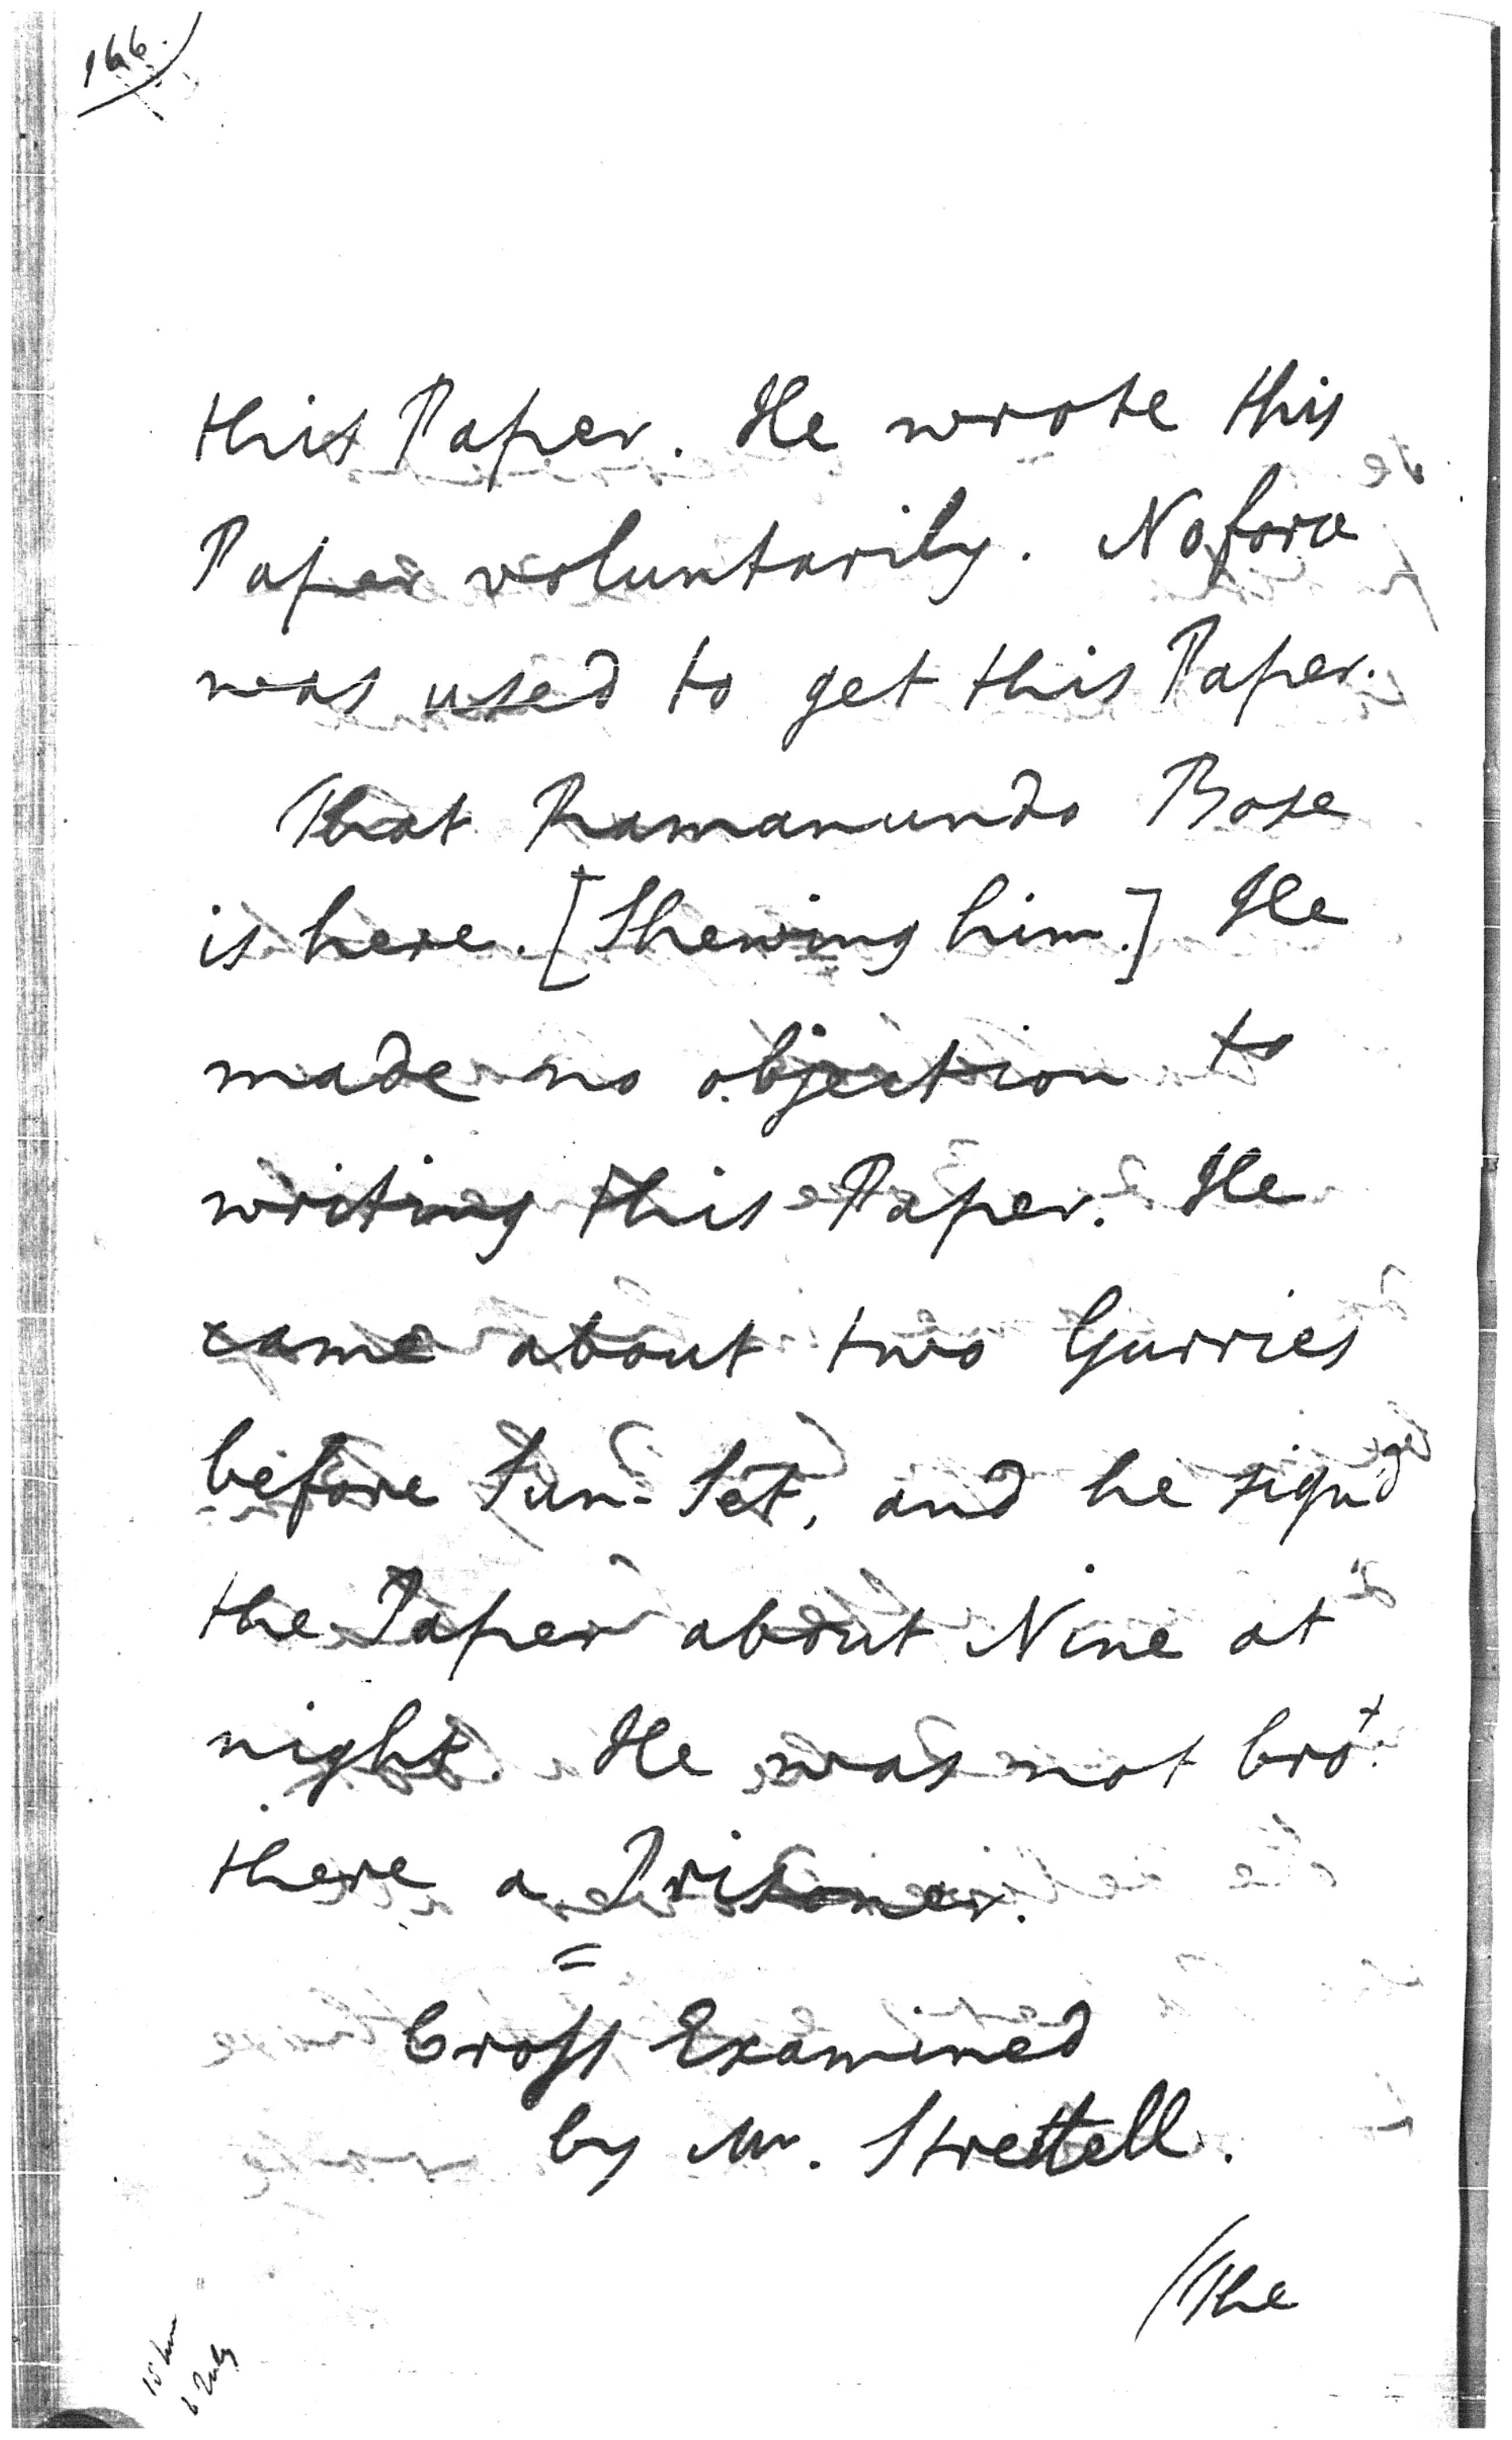 166.
this Paper. He wrote this
Paper voluntarily. No force
was used to get this Paper.
That Ramanundo Bose
is here. [Shewing him.] He
made no objection to
writing this Paper. He
came about two Gurries
before Sun-Set, and he signd
the Paper about Nine at
night. He was not brot.
there a Prisoner.
=
Cross Examined
by Mr. Strettell.
/The